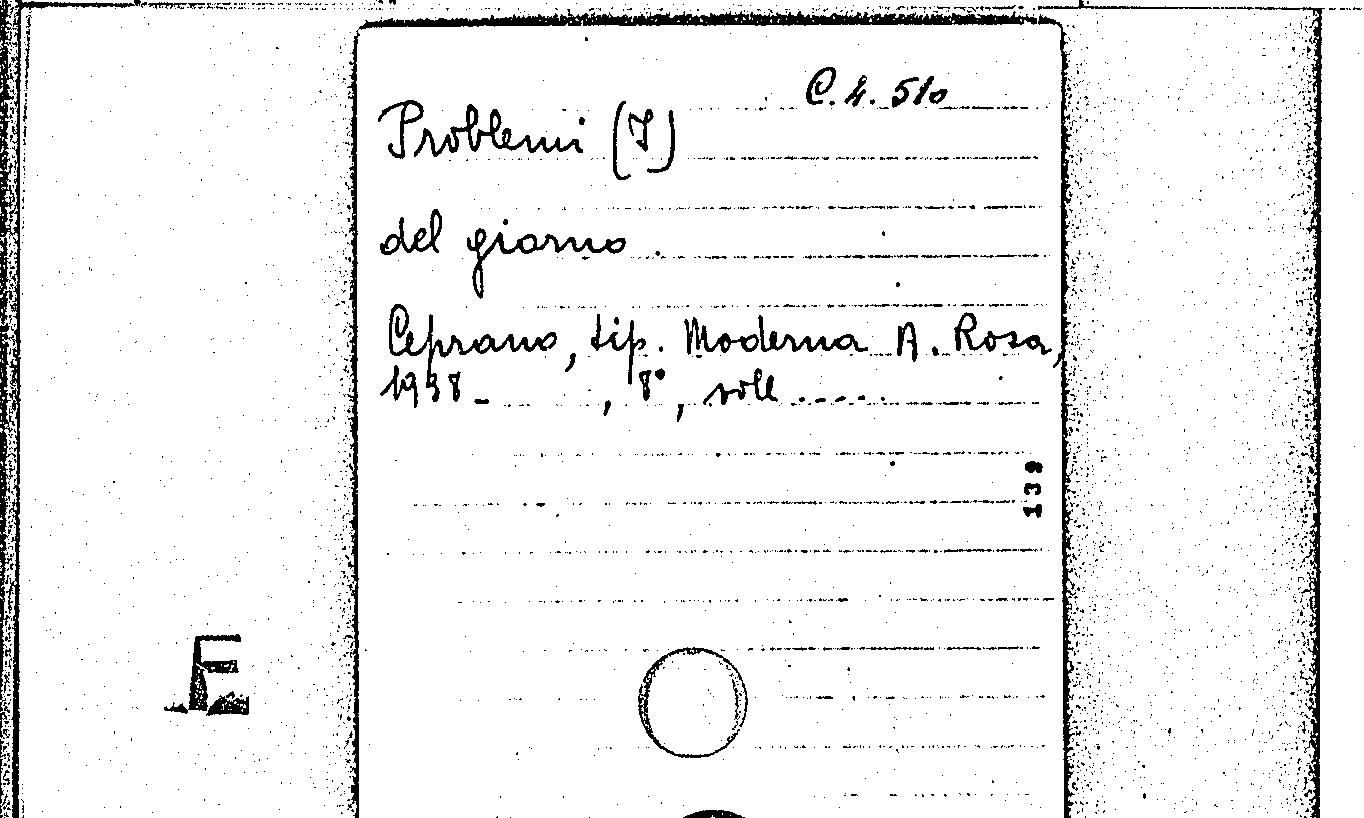 C.4.510
Problemi (I)
del giorno.
Ceprano, tip. Moderna A. Rosa,
1938- , 8°, voll.....
139
E